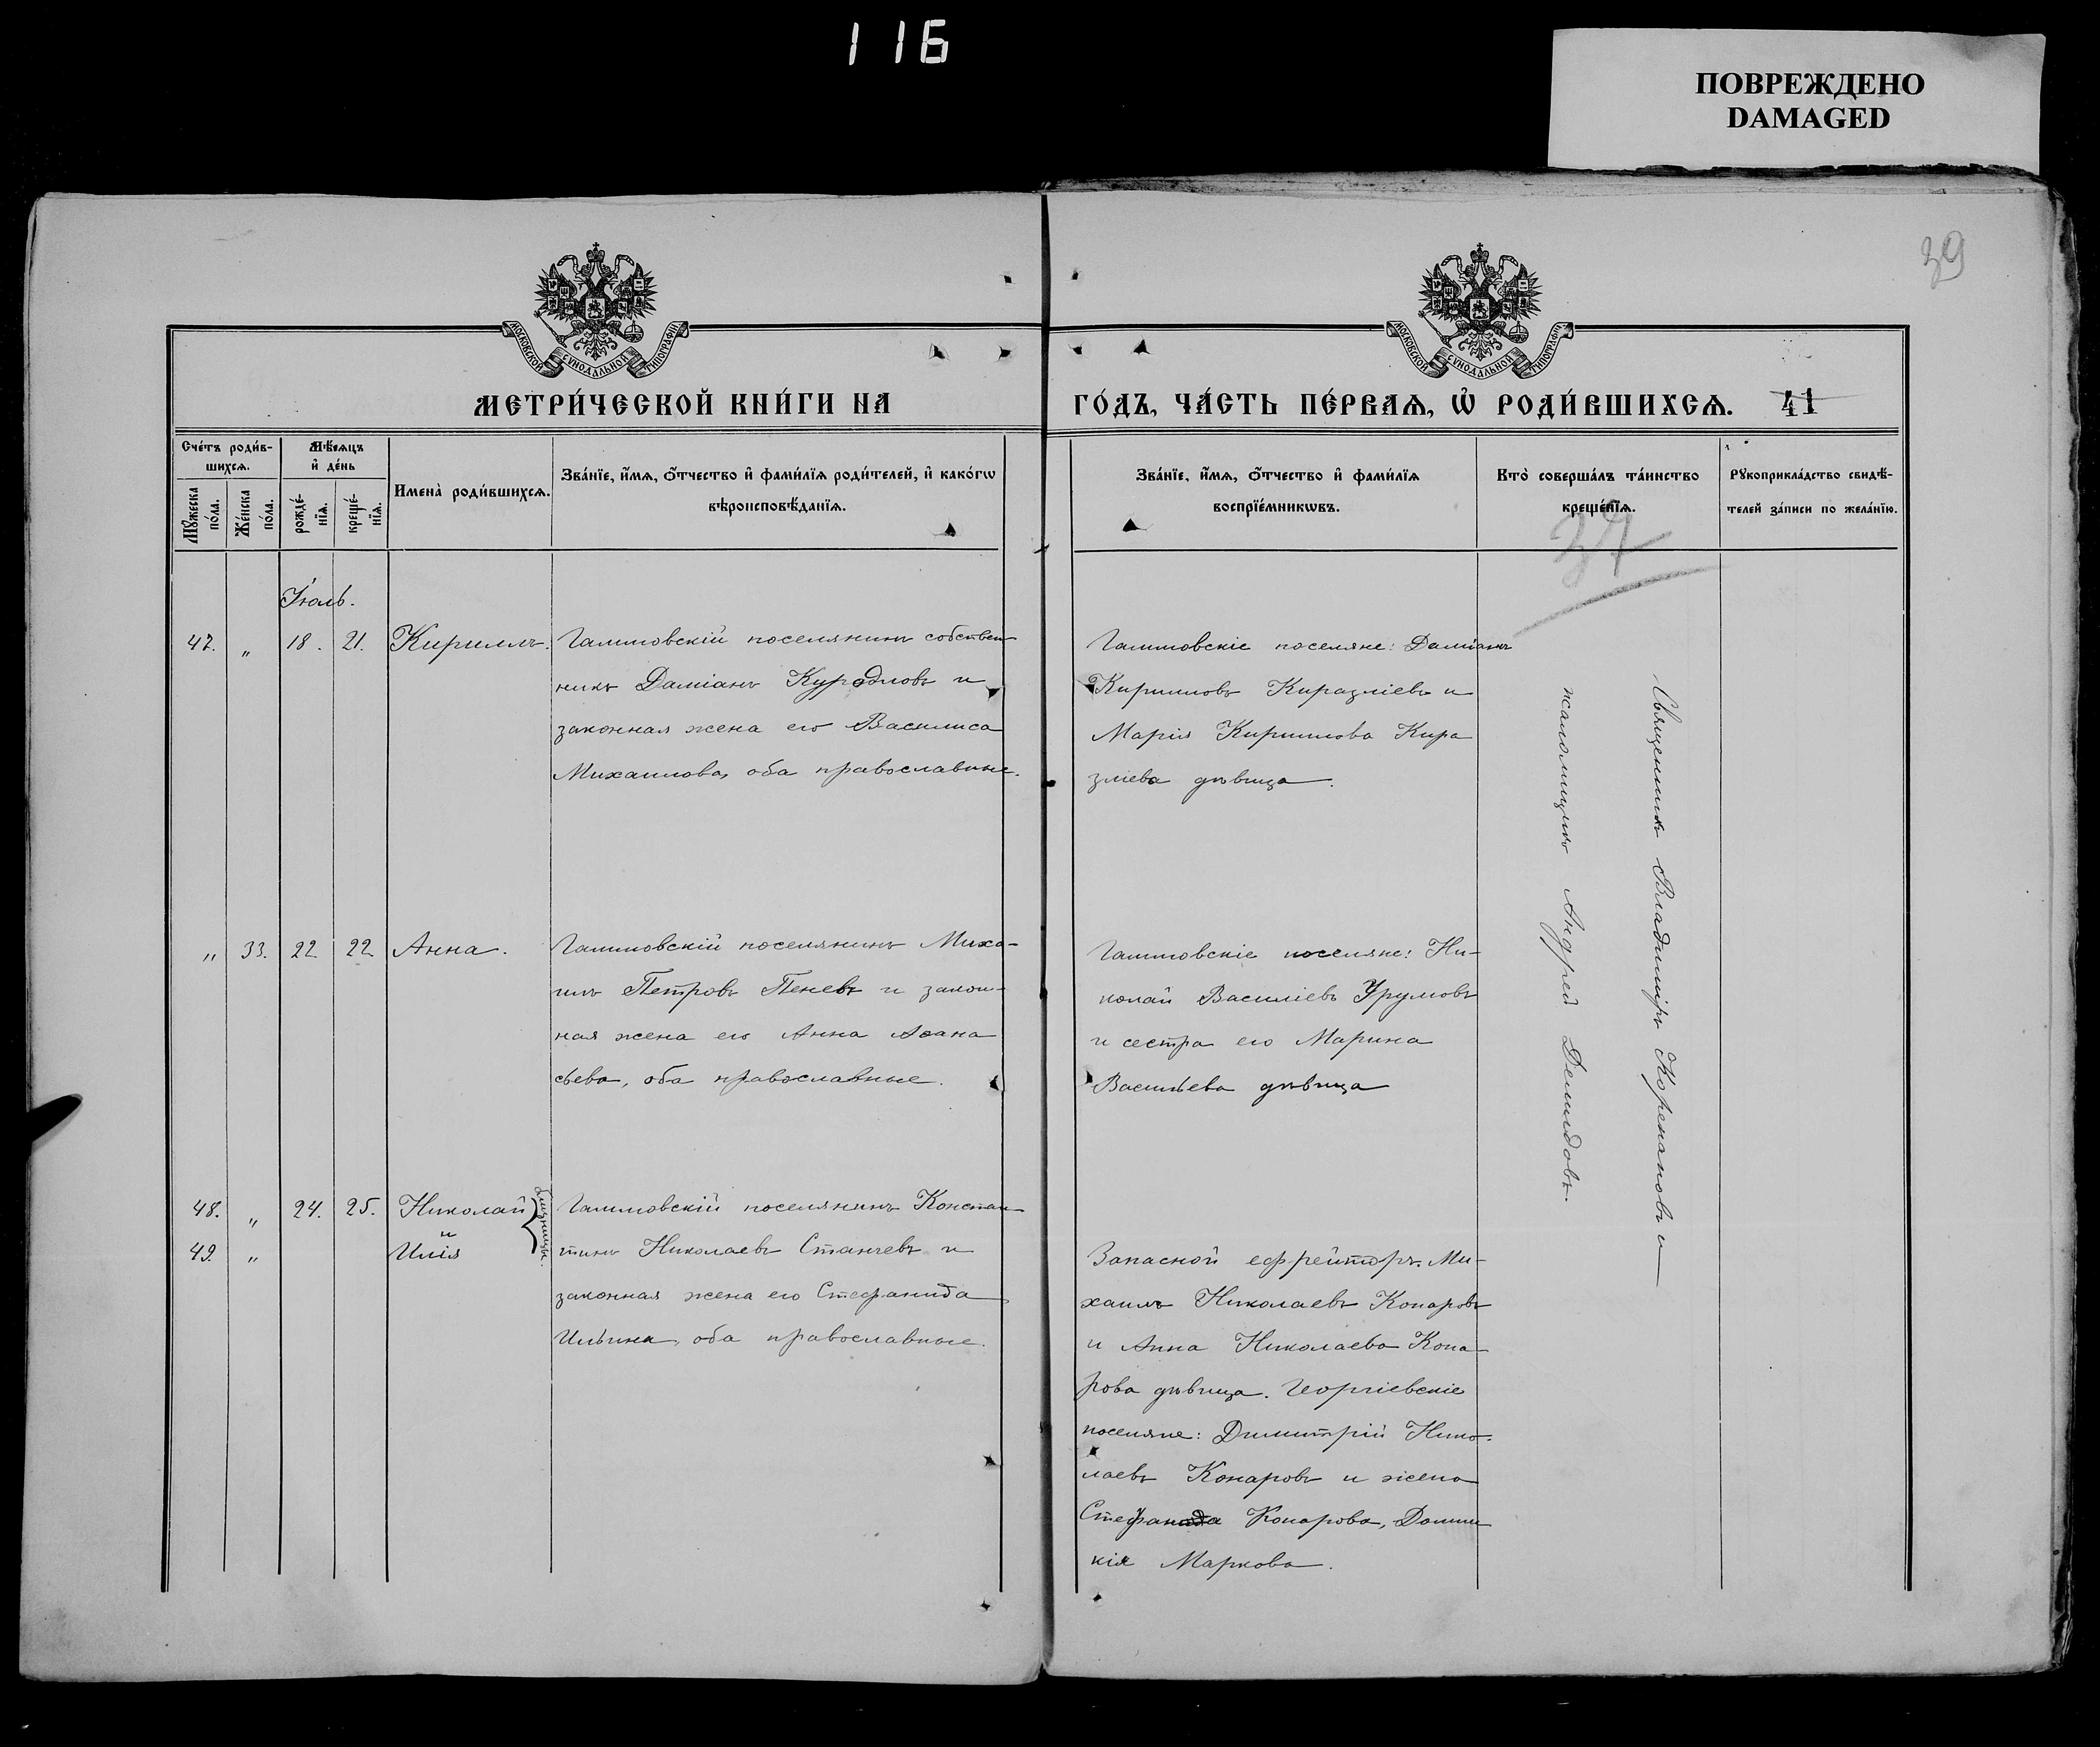 116
ПОВРЕЖДЕНО
DAMAGED
39
МОСКОВСКОЙ СѴНОДАЛЬНОЙ ТИПОГРАФІИ
МОСКОВСКОЙ СѴНОДАЛЬНОЙ ТИПОГРАФІИ
МЕТРИ́ЧЕСКОЙ КНИ́ГИ НА
ГО́ДЪ, ЧА́СТЬ ПЕ́РВАѦ, Ѡ҆ РОДИ́ВШИХСѦ. 41
Сче́тъ роди́в-
шихсѧ.
Мꙋ́жеска
по́ла.
Же́нска
по́ла.
Мѣ́сѧцъ
и҆ де́нь
рожде́-
нїѧ.
креще́-
нїѧ.
Имена̀ роди́вшихсѧ.
Зва́нїе, и҆́мѧ, ѻ҆́тчество и҆ фами́лїѧ роди́телей, и҆ како́гѡ
вѣроисповѣ́данїѧ.
Зва́нїе, и҆́мѧ, ѻ҆́тчество и҆ фами́лїѧ
воспрїе́мникѡвъ.
Кто̀ соверша́лъ та́инство
креще́нїѧ.
Рꙋкоприкла́дство свидѣ́-
телей за́писи по жела́нїю.
37
Іюль.
47. „ 18. 21. Кириллъ.
Галицовскій поселянинъ собствен-
никъ Даміанъ Куродловъ и
законная жена его Василиса
Михаилова, оба православные.
Галицовскіе поселяне: Даміанъ
Кирилловъ Киразліевъ и
Марія Кириллова Кира
зліева дѣвица.
„ 33. 22 22 Анна.
Галицовскій поселянинъ Миха-
илъ Петровъ Пеневъ и закон-
ная жена его Анна Аѳана
сьева, оба православные.
Галицовскіе поселяне: Ни-
колай Василіевъ Урумовъ
и сестра его Марина
Васильева дѣвица
48. „ 24. 25. Николай
и
49. „ Илія
близнецы.
Галицовскій поселянинъ Констан-
тинъ Николаевъ Станчевъ и
законная жена его Стефанида
Ильина, оба православные.
Запасной ефрейторъ. Ми-
хаилъ Николаевъ Конаровъ
и Анна Николаева Кона-
рова дѣвица. Георгіевскіе
поселяне: Димитрій Нико-
лаевъ Конаровъ и жена
Стефанида Конарова, Домни
кія Маркова.
Священникъ Владиміръ Корепановъ и
псаломщикъ Андрей Демидовъ.